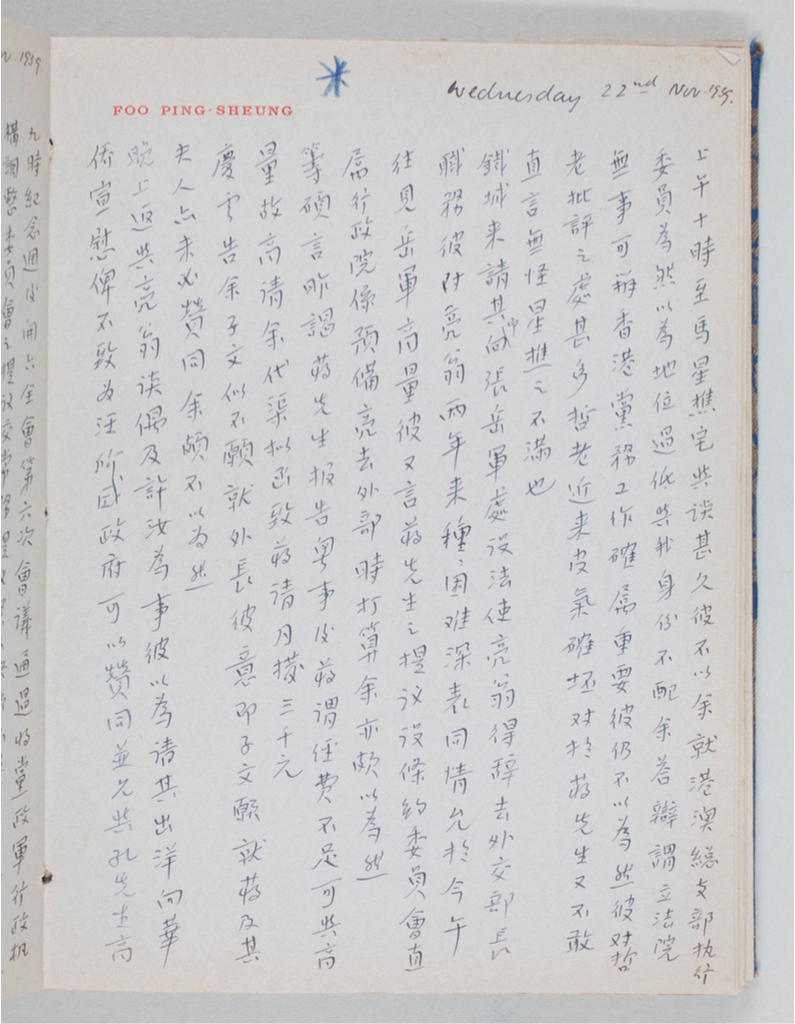 Wednesday 22nd Nov. 1939.
FOO PING-SHEUNG
上午十時至馬星樵宅与談甚久彼不以余就港澳總支部执行
委員為然以為地位過低与我身份不配余答辯謂立法院
無事可辦香港黨務工作確属重要彼仍不以為然彼对哲
老批評之處甚多哲老近来皮氣確坏对於蒋先生又不敢
直言無怪星樵之不滿也
鐵城来請其向張岳軍處设法使亮翁得辞去外交部長
職務彼对亮翁两年来種:困难深表同情允於今午
往見岳軍商量彼又言蒋先生之提议设條約委員會直
属行政院係預備亮去外部時打算余亦頗以為然
等碩言昨謁蒋先生报告粤事後蒋謂经費不足可与商
量故商請余代渠拟函致蒋请月撥三千元
慶雲告余子文似不願就外長彼意即子文願就蒋及其
夫人亦未必贊同余頗不以為然
晚上返与亮翁谈偶及許汝為事彼以為请其出洋向華
侨宣慰俾不致为汪所惑政府可以贊同並允与孔先生商
Nov. 1939.
九時紀念週後開六全會第六次會議通過将党政軍行政机
構調整委員會之提议交常務